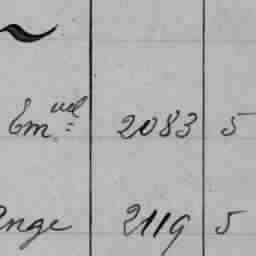 Em.uel 2083 5
ange 2119 5